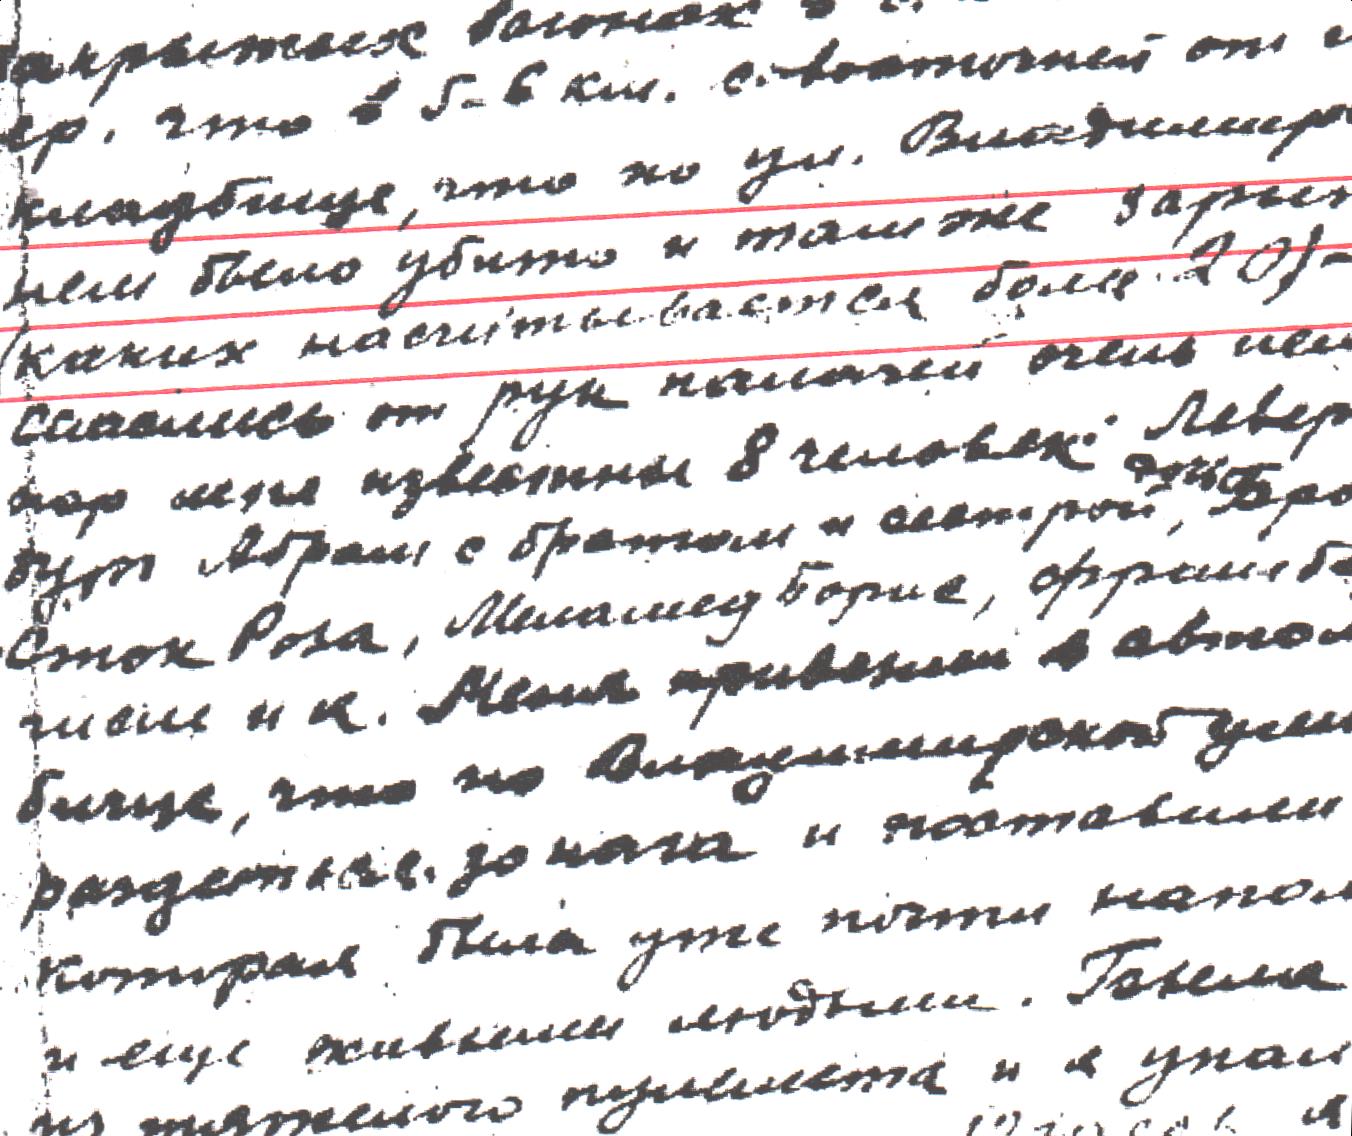 закрытых вагонах в
ер. что в 5-6 км. с.-восточней от
кладбище, что по ул. Владимиро
нем было убито и там же зарыт
(каких насчитывается более 20)-
спаслись от рук палачей очень нем
пор мне известны 8 человек: Левер
Абрам с братом и сестрой,
Сток Роза, Меламед Борис,
числе и я. Меня привезли в автом
бище, что по Владимирской ули
раздеться до нага и поставили
которая была уже почти напол
и еще живыми людьми.
из тяжелого пулемета и я упал